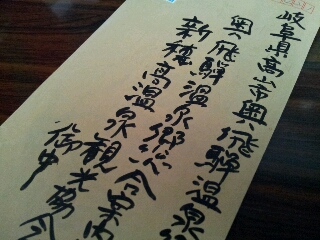 岐阜県高山市奥飛騨温泉
奥飛騨温泉郷総合案内
新穂高温泉観光
御中